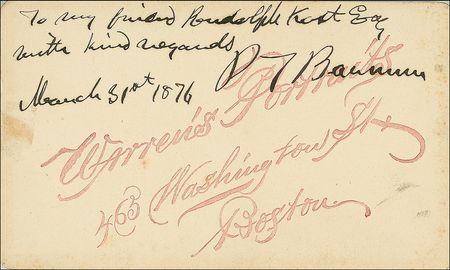 To my friend Rudolph Kost Esq
with kind regards
P T Barnum
March 31st 1876
Warren's Portraits
463 Washington St.
Boston